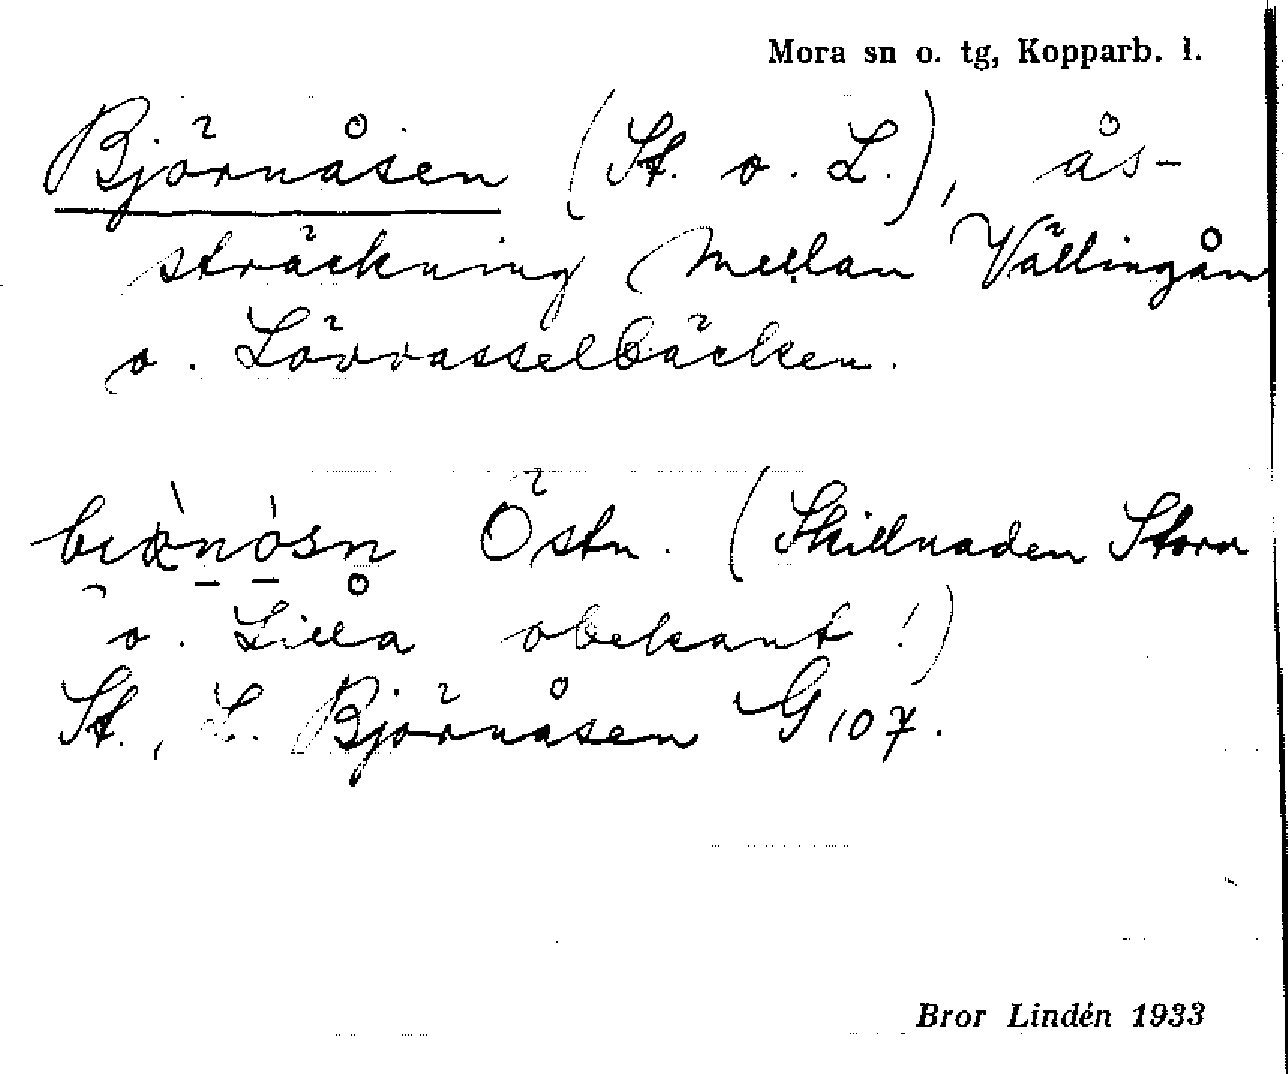 Mora sn o. tg, Kopparb. l.
Björnåsen (St. o. L.), ås-
sträckning mellan Vällingån
o. Lövrasselbäcken.
Östn. (Skillnaden Stora
o. Lilla obekant!)
St., L. Björnåsen G 107.
Bror Lindén 1933